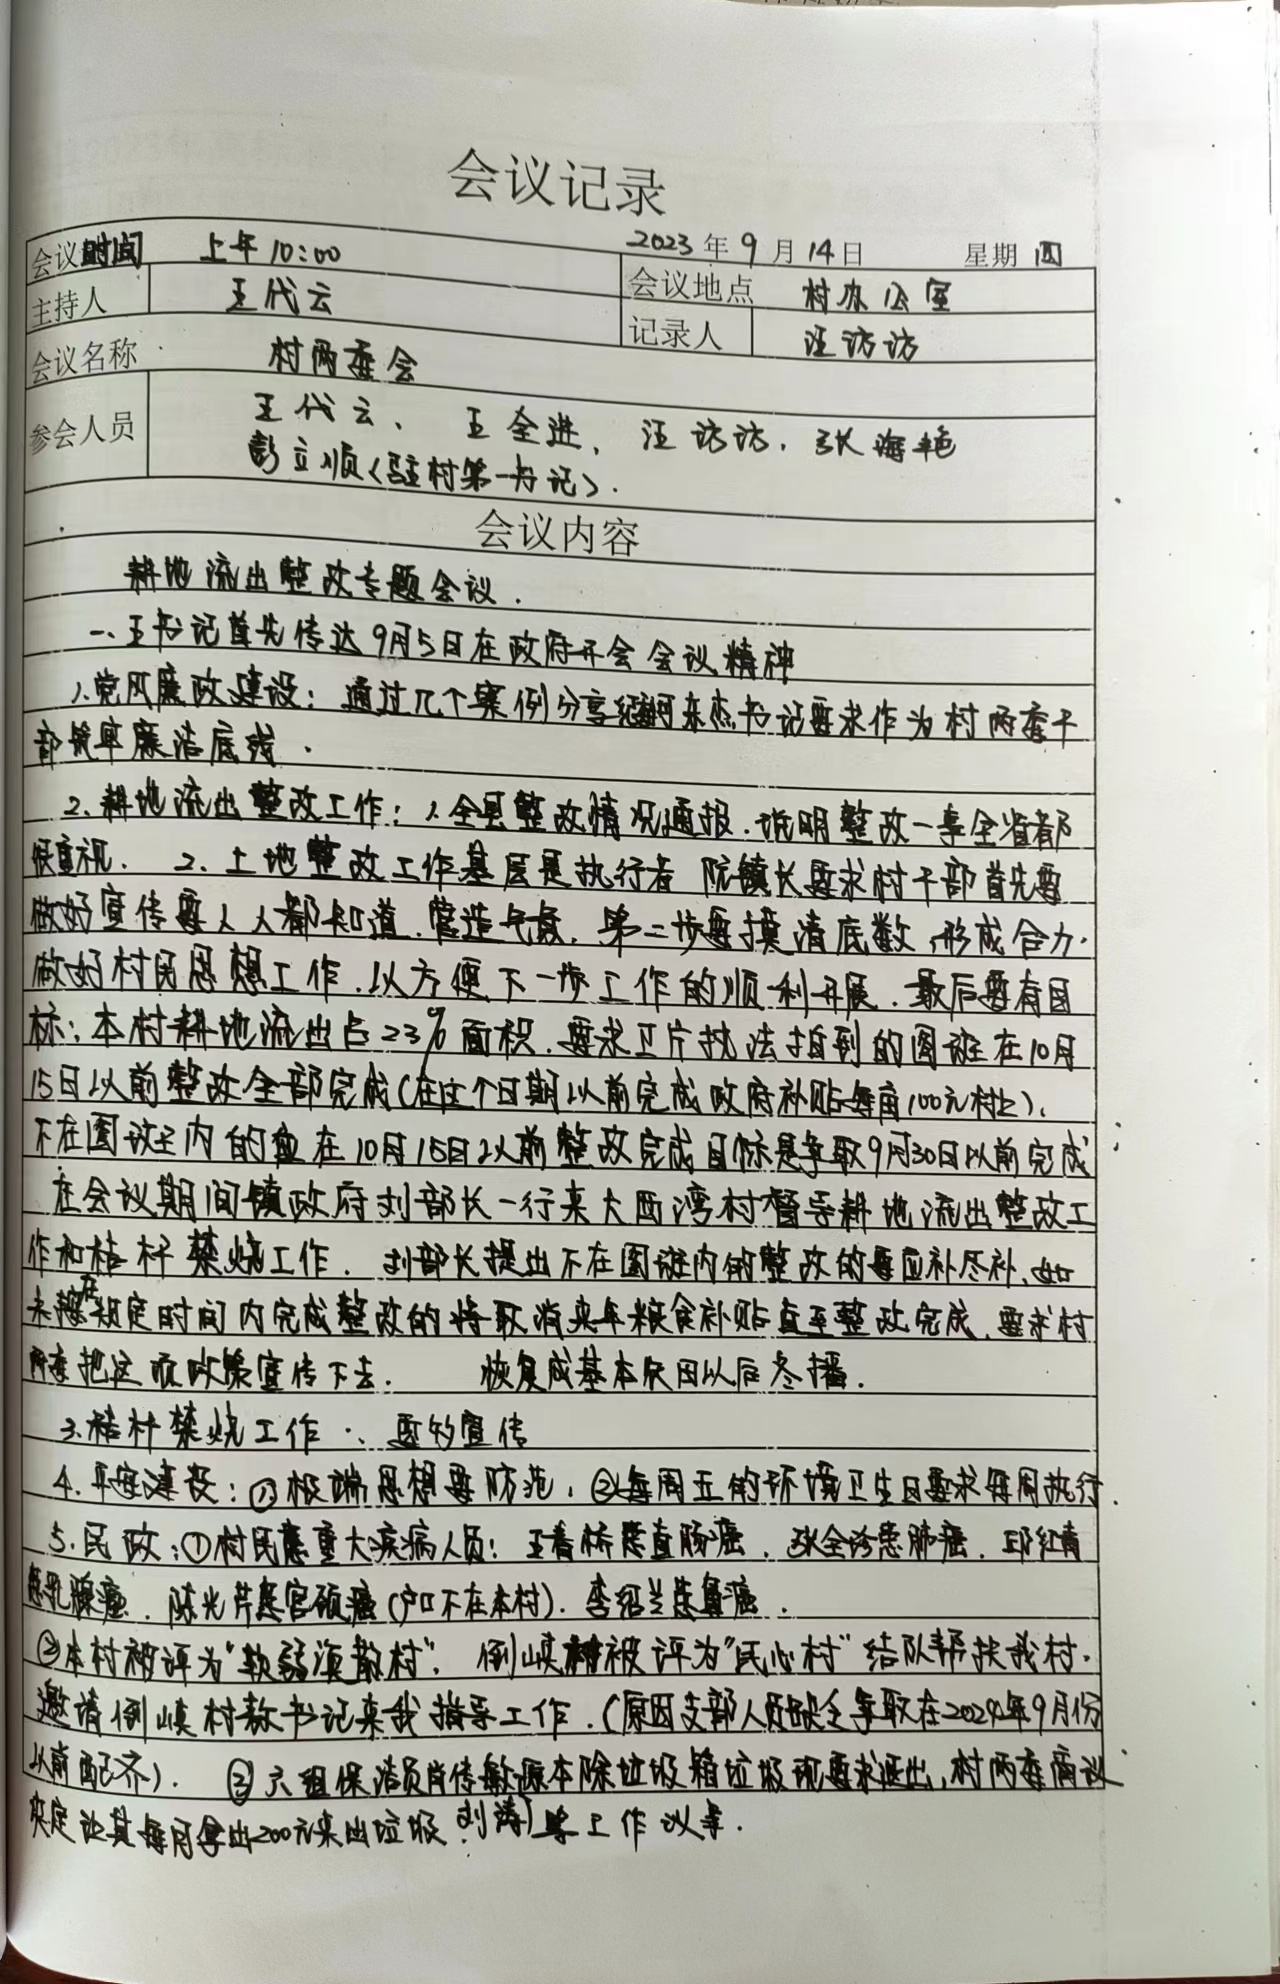 会议记录
会议时间 上午10:00 2023年9月14日 星期四
主持人 王代云 会议地点 村办公室
记录人 汪访访
会议名称 村两委会
参会人员 王代云、王全进、汪访访、张海艳
彭立顺(驻村第一书记).
会议内容
耕地流出整改专题会议.
一、王书记首先传达9月5日在政府开会会议精神
1.党风廉政建设:通过几个案例分享纪委柯东杰书记要求作为村两委干
部筑牢廉洁底线.
2.耕地流出整改工作:1.全县整改情况通报.说明整改一事全省都
很重视. 2.土地整改工作基层是执行者 阮镇长要求村干部首先要
做好宣传要人人都知道.营造气氛.第二步要摸清底数,形成合力.
做好村民思想工作.以方便下一步工作的顺利开展.最后要有目
标:本村耕地流出占23%面积.要求卫片执法拍到的图斑在10月
15日以前整改全部完成(在这个日期以前完成政府补贴每亩100元村上).
不在图斑之内的也在10月15日以前整改完成目标是争取9月30日以前完成
在会议期间镇政府刘部长一行来大西湾村督导耕地流出整改工
作和秸秆禁烧工作. 刘部长提出不在图斑内的整改的要应补尽补、如
未按在规定时间内完成整改的将取消来年粮食补贴直至整改完成.要求村
两委把这项政策宣传下去. 恢复成基本农田以后冬播.
3.秸秆禁烧工作、要的宣传
4.平安建设:①极端思想要防范.②每周五的环境卫生日要求每周执行.
5.民政:①村民患重大疾病人员:王春桥患直肠癌.张全珍患肺癌.邱红青
患乳腺癌.陈光芹患宫颈癌(户口不在本村).李绍兰患鼻癌.
②本村被评为"软弱涣散村".倒峡村被评为"民心村"结队帮扶我村.
邀请倒峡村敖书记来我指导工作.(原因支部人员缺乏争取在2024年9月份
以前配齐). ③六组保洁员肖传敏原本除垃圾箱垃圾现要求退出,村两委商议
决定让其每月拿出200元来出垃圾.刘涛 工作 .